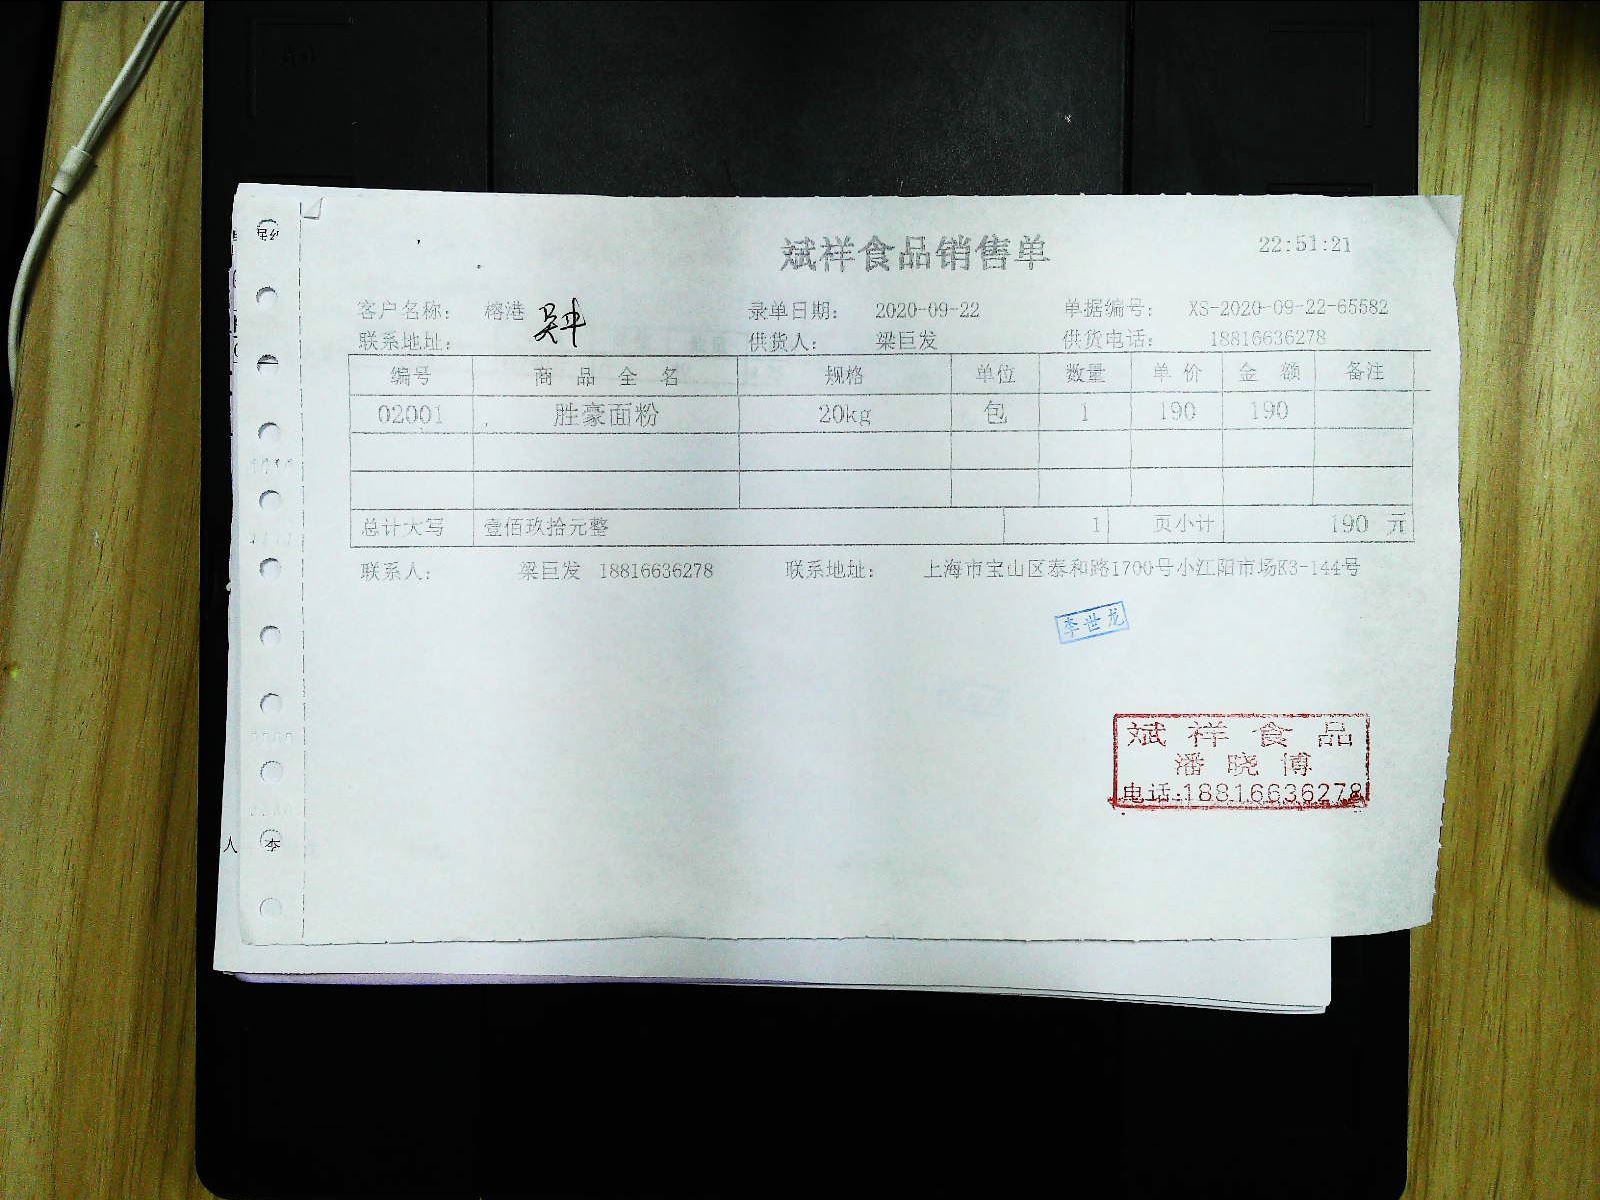 斌祥食品销售单 22:51:21
客户名称: 榕港 录单日期: 2020-09-22 单据编号: XS-2020-09-22-65582
联系地址: 供货人: 梁巨发 供货电话: 18816636278
编号 商品全名 规格 单位 数量 单价 金额 备注
02001 胜豪面粉 20kg 包 1 190 190
总计大写 壹佰玖拾元整 1 页小计 190 元
联系人: 梁巨发 18816636278 联系地址: 上海市宝山区泰和路1700号小江阳市场K3-144号
李世龙
斌祥食品
潘晓博
电话:18816636278
人